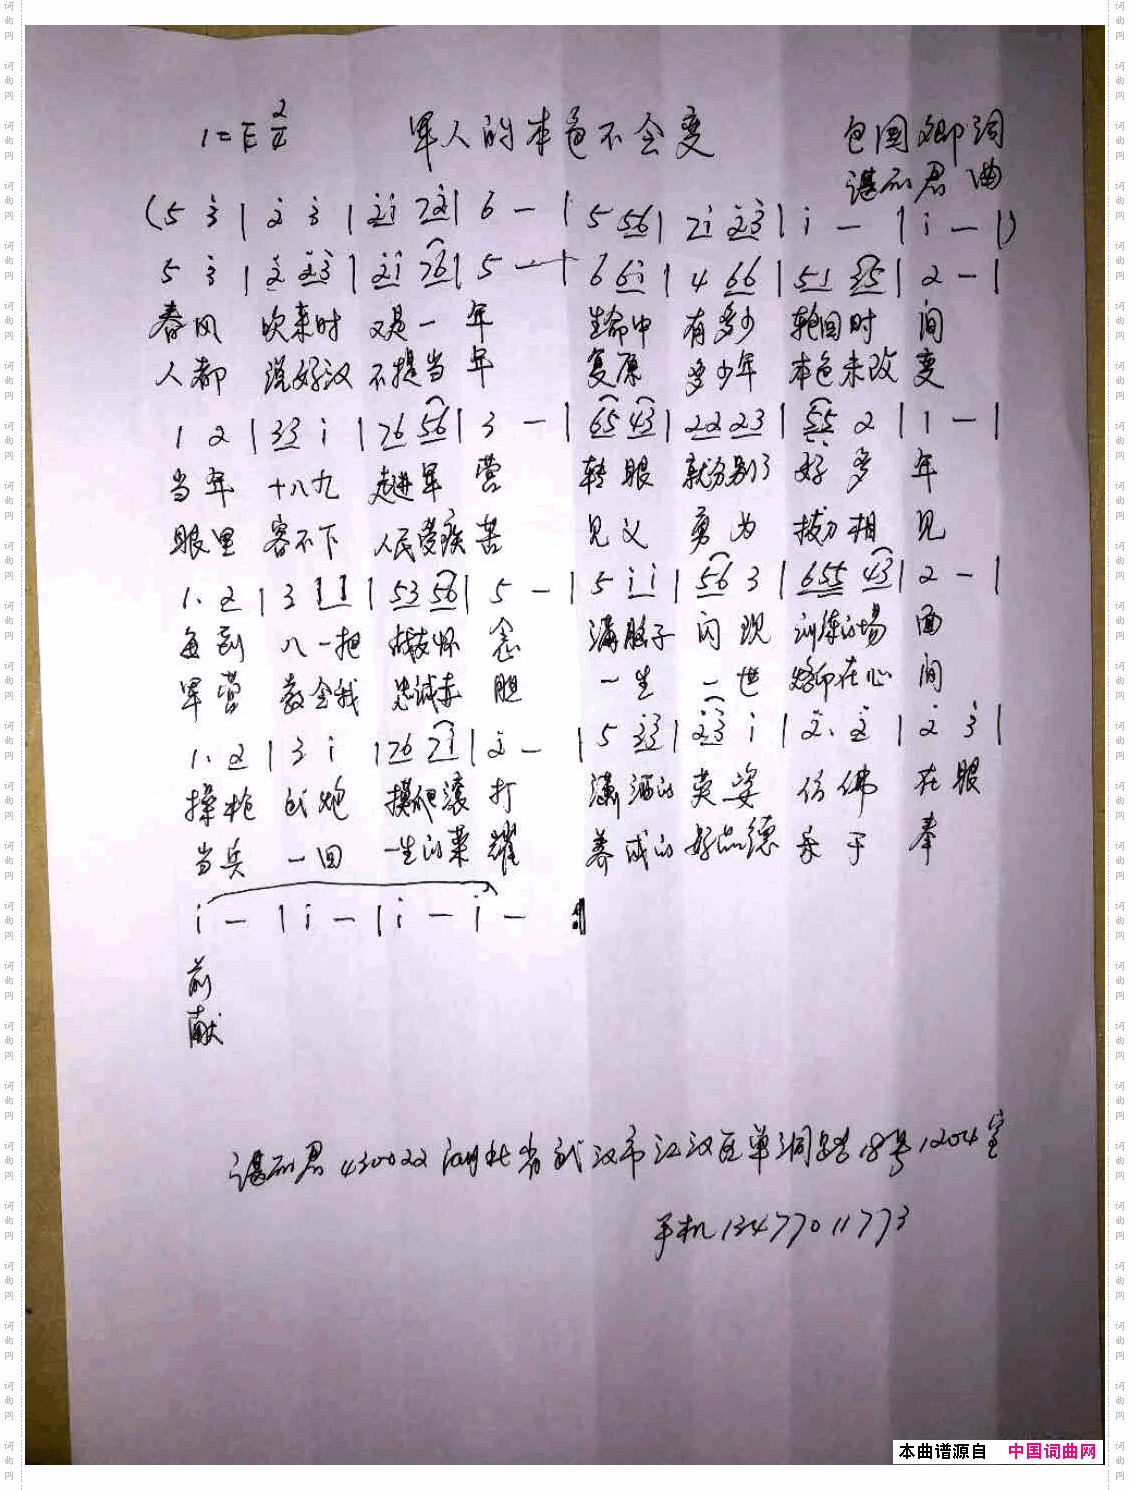 1=E 2/4 军人的本色不会变 包国卿词
谌丽君曲
(5 3̇ | 2̇ 3̇ | 2̇1̇ 72̇ | 6 - | 5 56 | 71̇ 2̇3̇ | 1̇ - | 1̇ - |)
5 3̇ | 2̇ 2̇3̇ | 2̇1̇ 76 | 5 - | 6 61̇ | 4 66 | 51 35 | 2 - |
春风 吹来时 又是一 年 生命中 有多少 轮回时 间
人都 说好汉 不提当 年 复原 多少年 本色未改 变
1 2 | 33 1̇ | 76 56 | 3 - | 65 43 | 22 23 | 55 2 | 1 - |
当年 十八九 走进军 营 转眼 就分别了 好多 年
眼里 容不下 人民受疾 苦 见义 勇为 拔刀相 见
1. 2 | 3 1 1 | 53 56 | 5 - | 5 1̇ 1̇ | 56 3 | 655 43 | 2 - |
每到 八一把 战友怀 念 满脑子 闪现 训练的场 面
军营 教会我 忠诚赤 胆 一生 一世 烙印在心 间
1. 2 | 3 1̇ | 76 71̇ | 2̇ - | 5 3̇3̇ | 2̇3̇ 1̇ | 2̇. 2̇ | 2̇ 3̇ |
操枪 试炮 摸爬滚 打 潇洒的 英姿 仿佛 在眼
当兵 一回 一生的荣 耀 养成的 好品德 乐于 奉
1̇ - | 1̇ - | 1̇ - 1̇ - :‖
前
献
谌丽君 430022 湖北省武汉市江汉区单洞路18号1204室
手机13477011773
本曲谱源自 中国词曲网